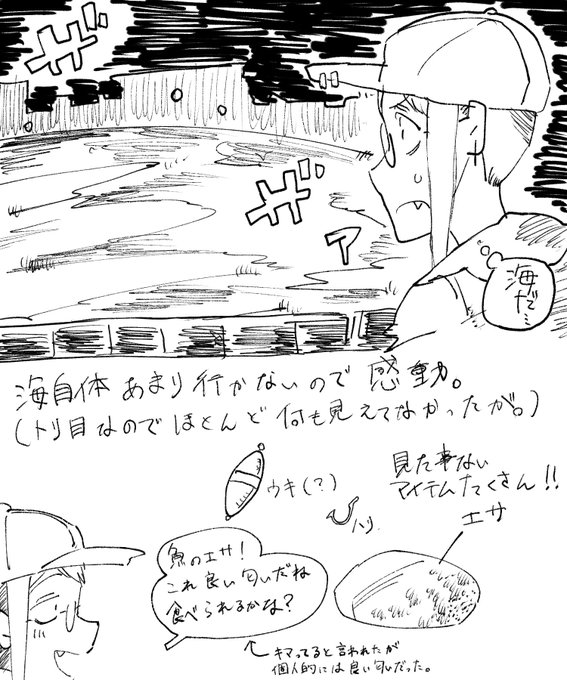 ザ
ザ
ア
海だ…
海自体あまり行かないので感動。
(トリ目なのでほとんど何も見えてなかったが。)
見た事ない
アイテムたくさん!!
ウキ(?)
ハリ
エサ
魚のエサ!
これ良い匂いだね
食べられるかな?
キマってると言われたが
個人的には良い匂いだった。